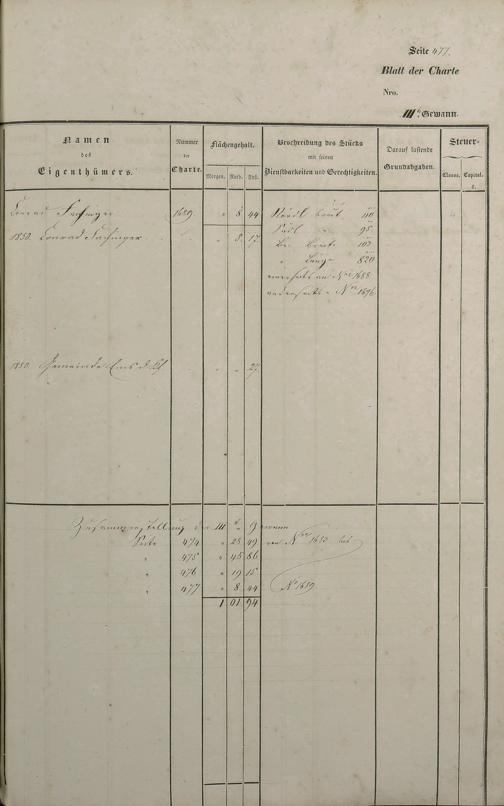 Seite 477.
Blatt der Charte
Nro.
IIIte Gewann
Namen des Eigenthümers.
Nummer der Charte.
Flächengehalt.
Morgen. Ruth. Fuß.
Beschreibung des Stücks mit seinen Dienstbarkeiten und Gerechtigkeiten.
Darauf lastende Grundabgaben.
Steuer-
Classe. Capital.
Conrad Fachinger 1689 " 8 44 Nördl. Breite 110
1850. Conrad Fachinger " 8. 17 Südl. " 95
Br. Breite 102
" Länge 820
einerseits an No 1688
anderseits " No 1696
1850. Gemeinde Ems " " 27
Zusammenstellung der IIIte Gewann
Seite 474 " 28 49 von No 1683 bis
" 475 " 45 86
" 476 " 19 15
" 477 " 8 44 No 1689.
1 01 94